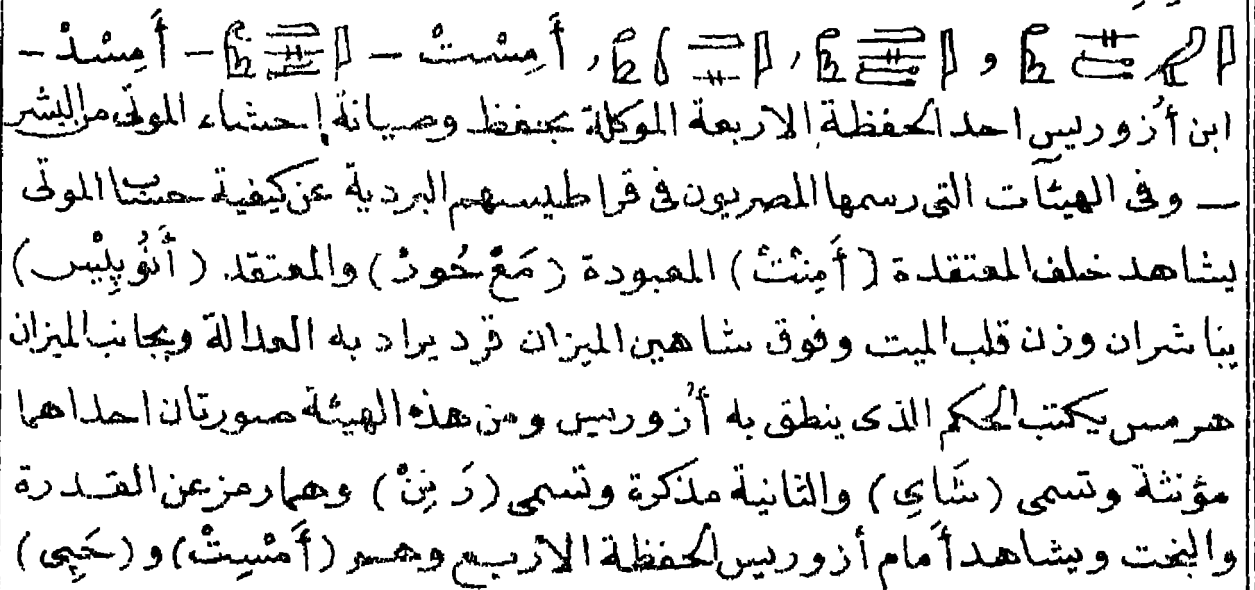 و , , أَمِسْتْ – – أَمِسْدْ –
ابن أُزوريس احد الحفظة الاربعة الموكلة بحفظ وصيانة إحشاء الموتى من البشر
— وفى الهيئات التى رسمها المصريون فى قراطيسهم البردية عن كيفية حساب الموتى
يشاهد خلف المعتقدة (أَمِنْتْ) المعبودة (مَعْ حُورْ) والمعتقد (أَنُوبِيْس)
يباشران وزن قلب الميت وفوق شاهين الميزان قرد يراد به العدالة وبجانب الميزان
هرمس يكتب الحكم الذى ينطق به أُزوريس ومن هذه الهيئة صورتان احداهما
مؤنثة وتسمى (شَاىِ) والثانية مذكرة وتسمى (رَنِنْ) وهما رمز عن القدرة
والبخت ويشاهد أمام أزوريس الحفظة الاربع وهم (أَمْسِتْ) و (حَپِى)